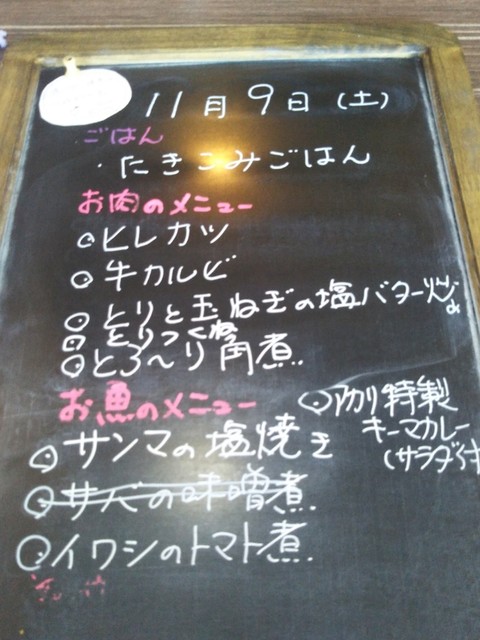 11月9日(土)
ごはん
・たきこみごはん
お肉のメニュー
ヒレカツ
牛カルビ
とりと玉ねぎの塩バター炒め
とりつくね
とろ〜り角煮
お魚のメニュー
サンマの塩焼き
サバの味噌煮
イワシのトマト煮
特製
キーマカレー
(サラダ付